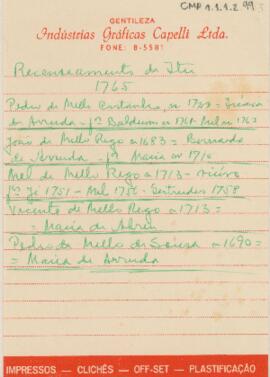 CMP 1.1.2 99
GENTILEZA
Indústrias Gráficas Capelli Ltda.
FONE: 8-5581
Recenseamento de Itu
1765
Pedro de Mello Coutinho, n 1720 =
de Arruda - fº Balduino n 1761 Mel n 1763
João de Mello Rego n 1683 = Bernarda
de Arruda - fª Maria n 1710
Mel de Mello Rego n 1713 -
fºs Jé 1751 - Mel 1756 - Gertrudes 1758
Vicente de Mello Rego n 1713 =
= Maria de Abreu
Pedro de Mello de Sousa n 1690 =
= Maria de Arruda
IMPRESSOS — CLICHÊS — OFF-SET — PLASTIFICAÇÃO